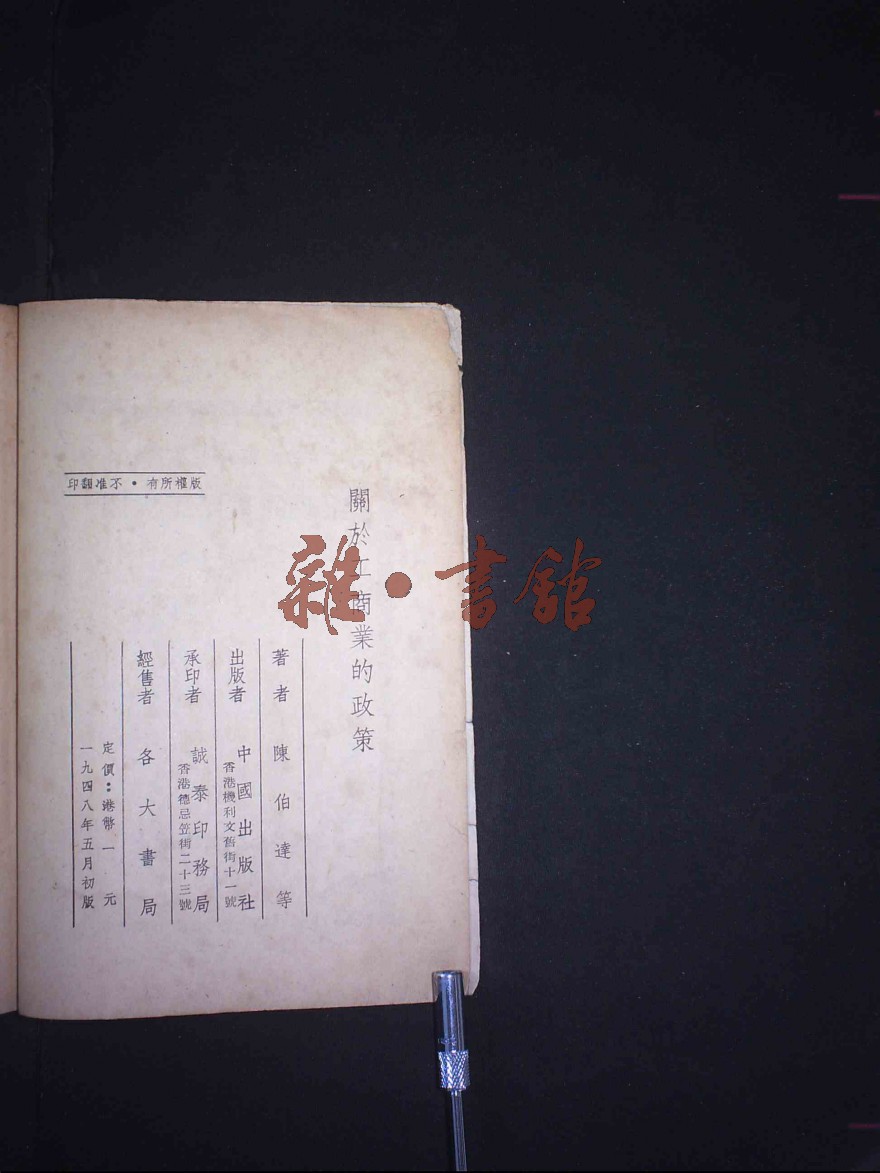 關於工商業的政策
著者 陳伯達等
出版者 中國出版社
香港機利文舊街十一號
承印者 誠泰印務局
香港德忌笠街二十三號
經售者 各大書局
定價：港幣一元
一九四八年五月初版
版權所有・不准翻印
雜・書館